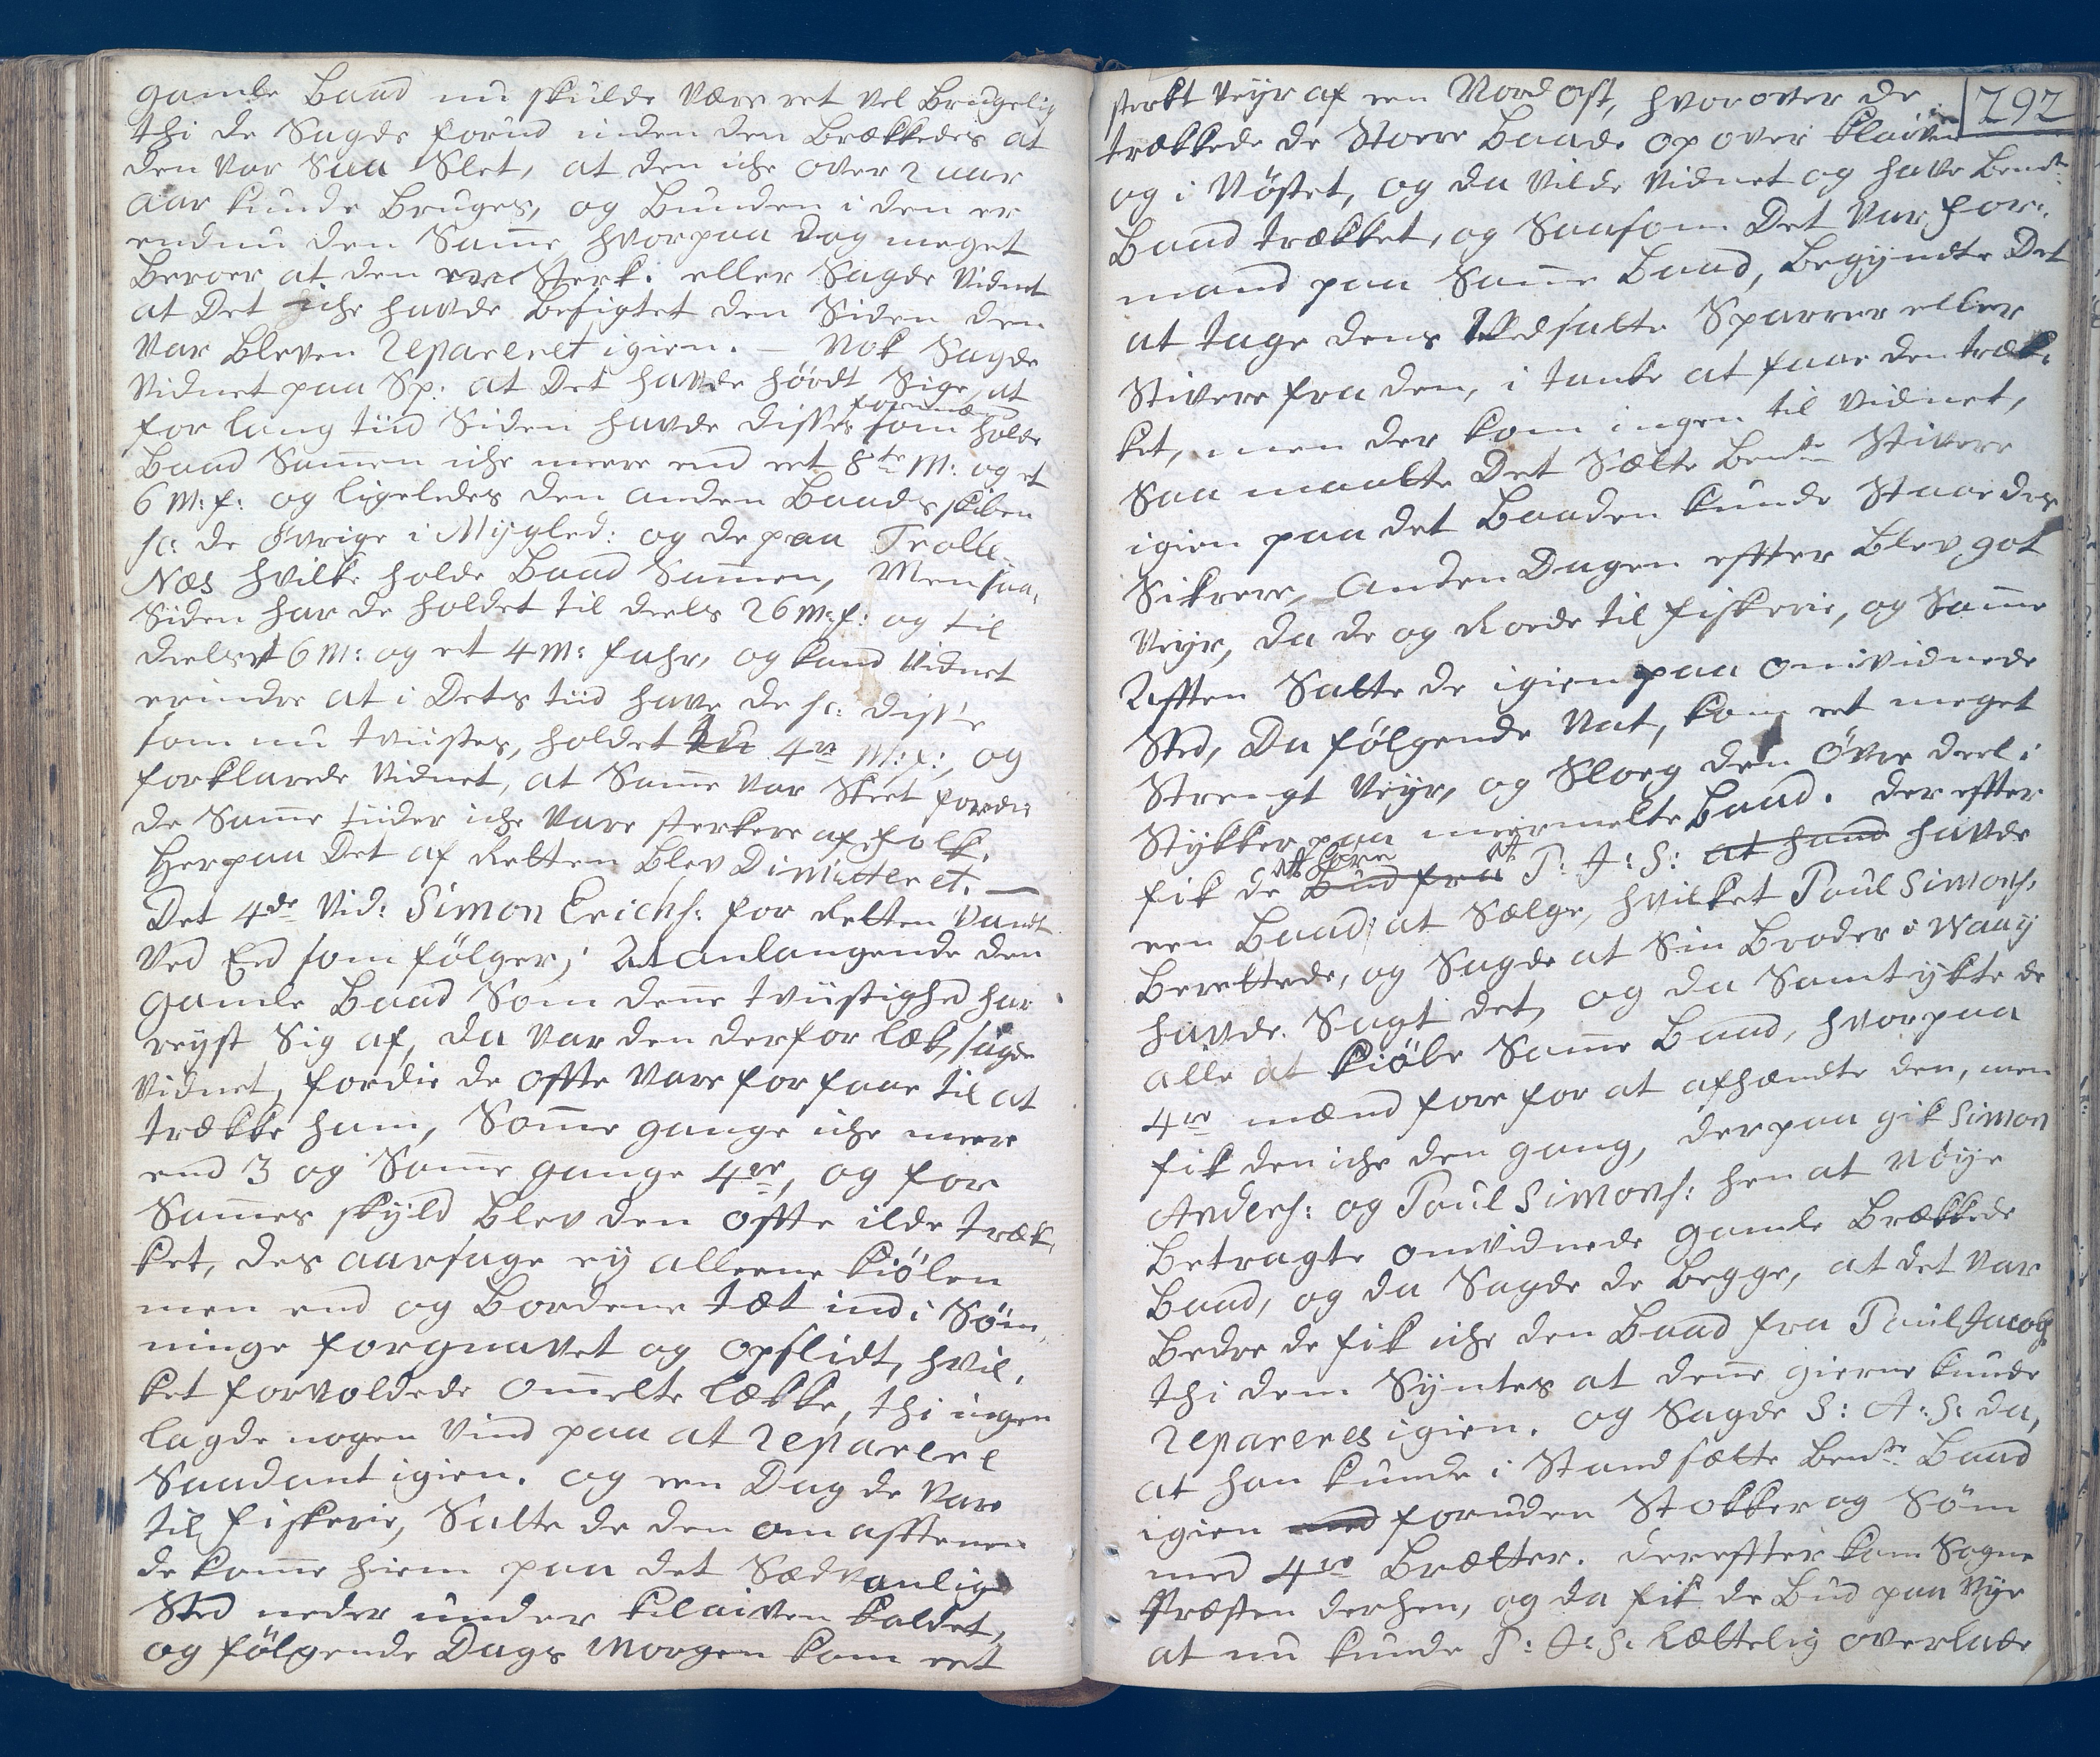 gamle Baad nu skulde være ret vel Brugelig
thi de Sagde forud inden den Brækkedes at
den var Saa Slet, at den iche over 2 aar
aar kunde Bruges, og Bunden i den er
endnu den Samme hvorpaa dog meget
Beroer at den er Sterk. eller Sagde vidnet
at Det iche havde Besigtet den Siden den
var Bleven Repareret igien. — Nok Sagde
vidnet paa Sp: at Det havde hördt Sige, at
for lang tiid Siden havde disse som holde
Baad Sammen iche meere end eet 8te M: og et
6 M: f: og ligeledes den anden Baads skiben
sc: de övrige i Mygled: og de paa Trolle
Næs hvilke holde Baad Sammen, Men saa,
Siden har de holdet til deels 2 6 M: f: og til
deels et 6 M: og et 4 M: fahr, og kand vidnet
erindre at i Dets tiid have de sc: disse
som nu tvistes, holdet 4re M: f:, og
forklarede vidnet, at Samme var Skeet fordi
de Samme tiider iche vare sterkere af folk.
Herpaa Det af Retten Blev Dimitteret. —
Det 4de vid: Simon Erichs: for Retten vandt
ved Eed som fölger; At anlangende den
gamle Baad Som denne tvistighed har
reyst Sig af, da var den derfor læk, sagde
vidnet, fordie de offte vare for faae til at
trække ham, Somme gange iche meere
end 3 og Somme gange 4re, og for
Sammes skyld blev den offte ilde træk,
ket, des aarsage ey alleene kiölen
men end og Bordene tæt ind i Söm,
ninge forgnavet og opslidt, hvil,
ket forvoldede ommelte lække, thi ingen
lagde nogen vind paa at Reparere
Saadant igien. og een Dag de vare
til fiskerie, Satte de den om afftenen
de komme hiem paa det Sædvanlige
Sted neder under kleiven kaldet,
og fölgende Dags Morgen kom eet
292
sterkt veyr af een Nord ost, hvorover de
trækkede de Store Baade op over klaiven
og i Nöstet, og da vilde vidnet og have Bemte
Baad trækket, og Saasom Det var for,
mand paa Samme Baad, Begyndte Det
at tage dens vedsatte Sparrer eller
Stivere fra den, i tanke at faae den træk,
ket, men der kom ingen til vidnet,
Saa maatte Det Sætte Bemte Stivere
igien paa det Baaden kunde Staae des
Sikrere, Anden Dagen effter Blev got
veyr, da de og Roede til fiskerie, og Samme
Afften Satte de igien paa omvidnede
Sted, Da fölgende Nat, kom eet meget
Strengt veyr, og Sloeg den övre deel i
Stykker paa meermelte Baad. Dereffter
fik de att höre Bud fra att P: J: S: at hand havde
een Baad at Sælge, hvilket Poul Simons:
Berettede, og Sagde at Sin Broder i Waay
havde Sagt det, og da Samtykte de
alle at kiöbe Samme Baad, hvorpaa
4re mænd fore for at afhændte den, men
fik den iche den gang, derpaa gik Simon
Anders: og Poul Simons: hen at Nöye
Betragte omvidnede gamle Brækkede
Baad, og da Sagde de Begge, at det var
Bedre de fik iche den Baad fra Poul Jacobs
thi dem Syntes at denne gierne kunde
Repareres igien. og Sagde S: A: S: da,
at han kunde i Stand sætte Bemte Baad
igien med foruden Stokker og Söm
med 4re Brætter. Dereffter kom Sogne
Præsten derhen, og da fik de Bud paa Nye
at nu kunde P: J: S: lættelig overlade